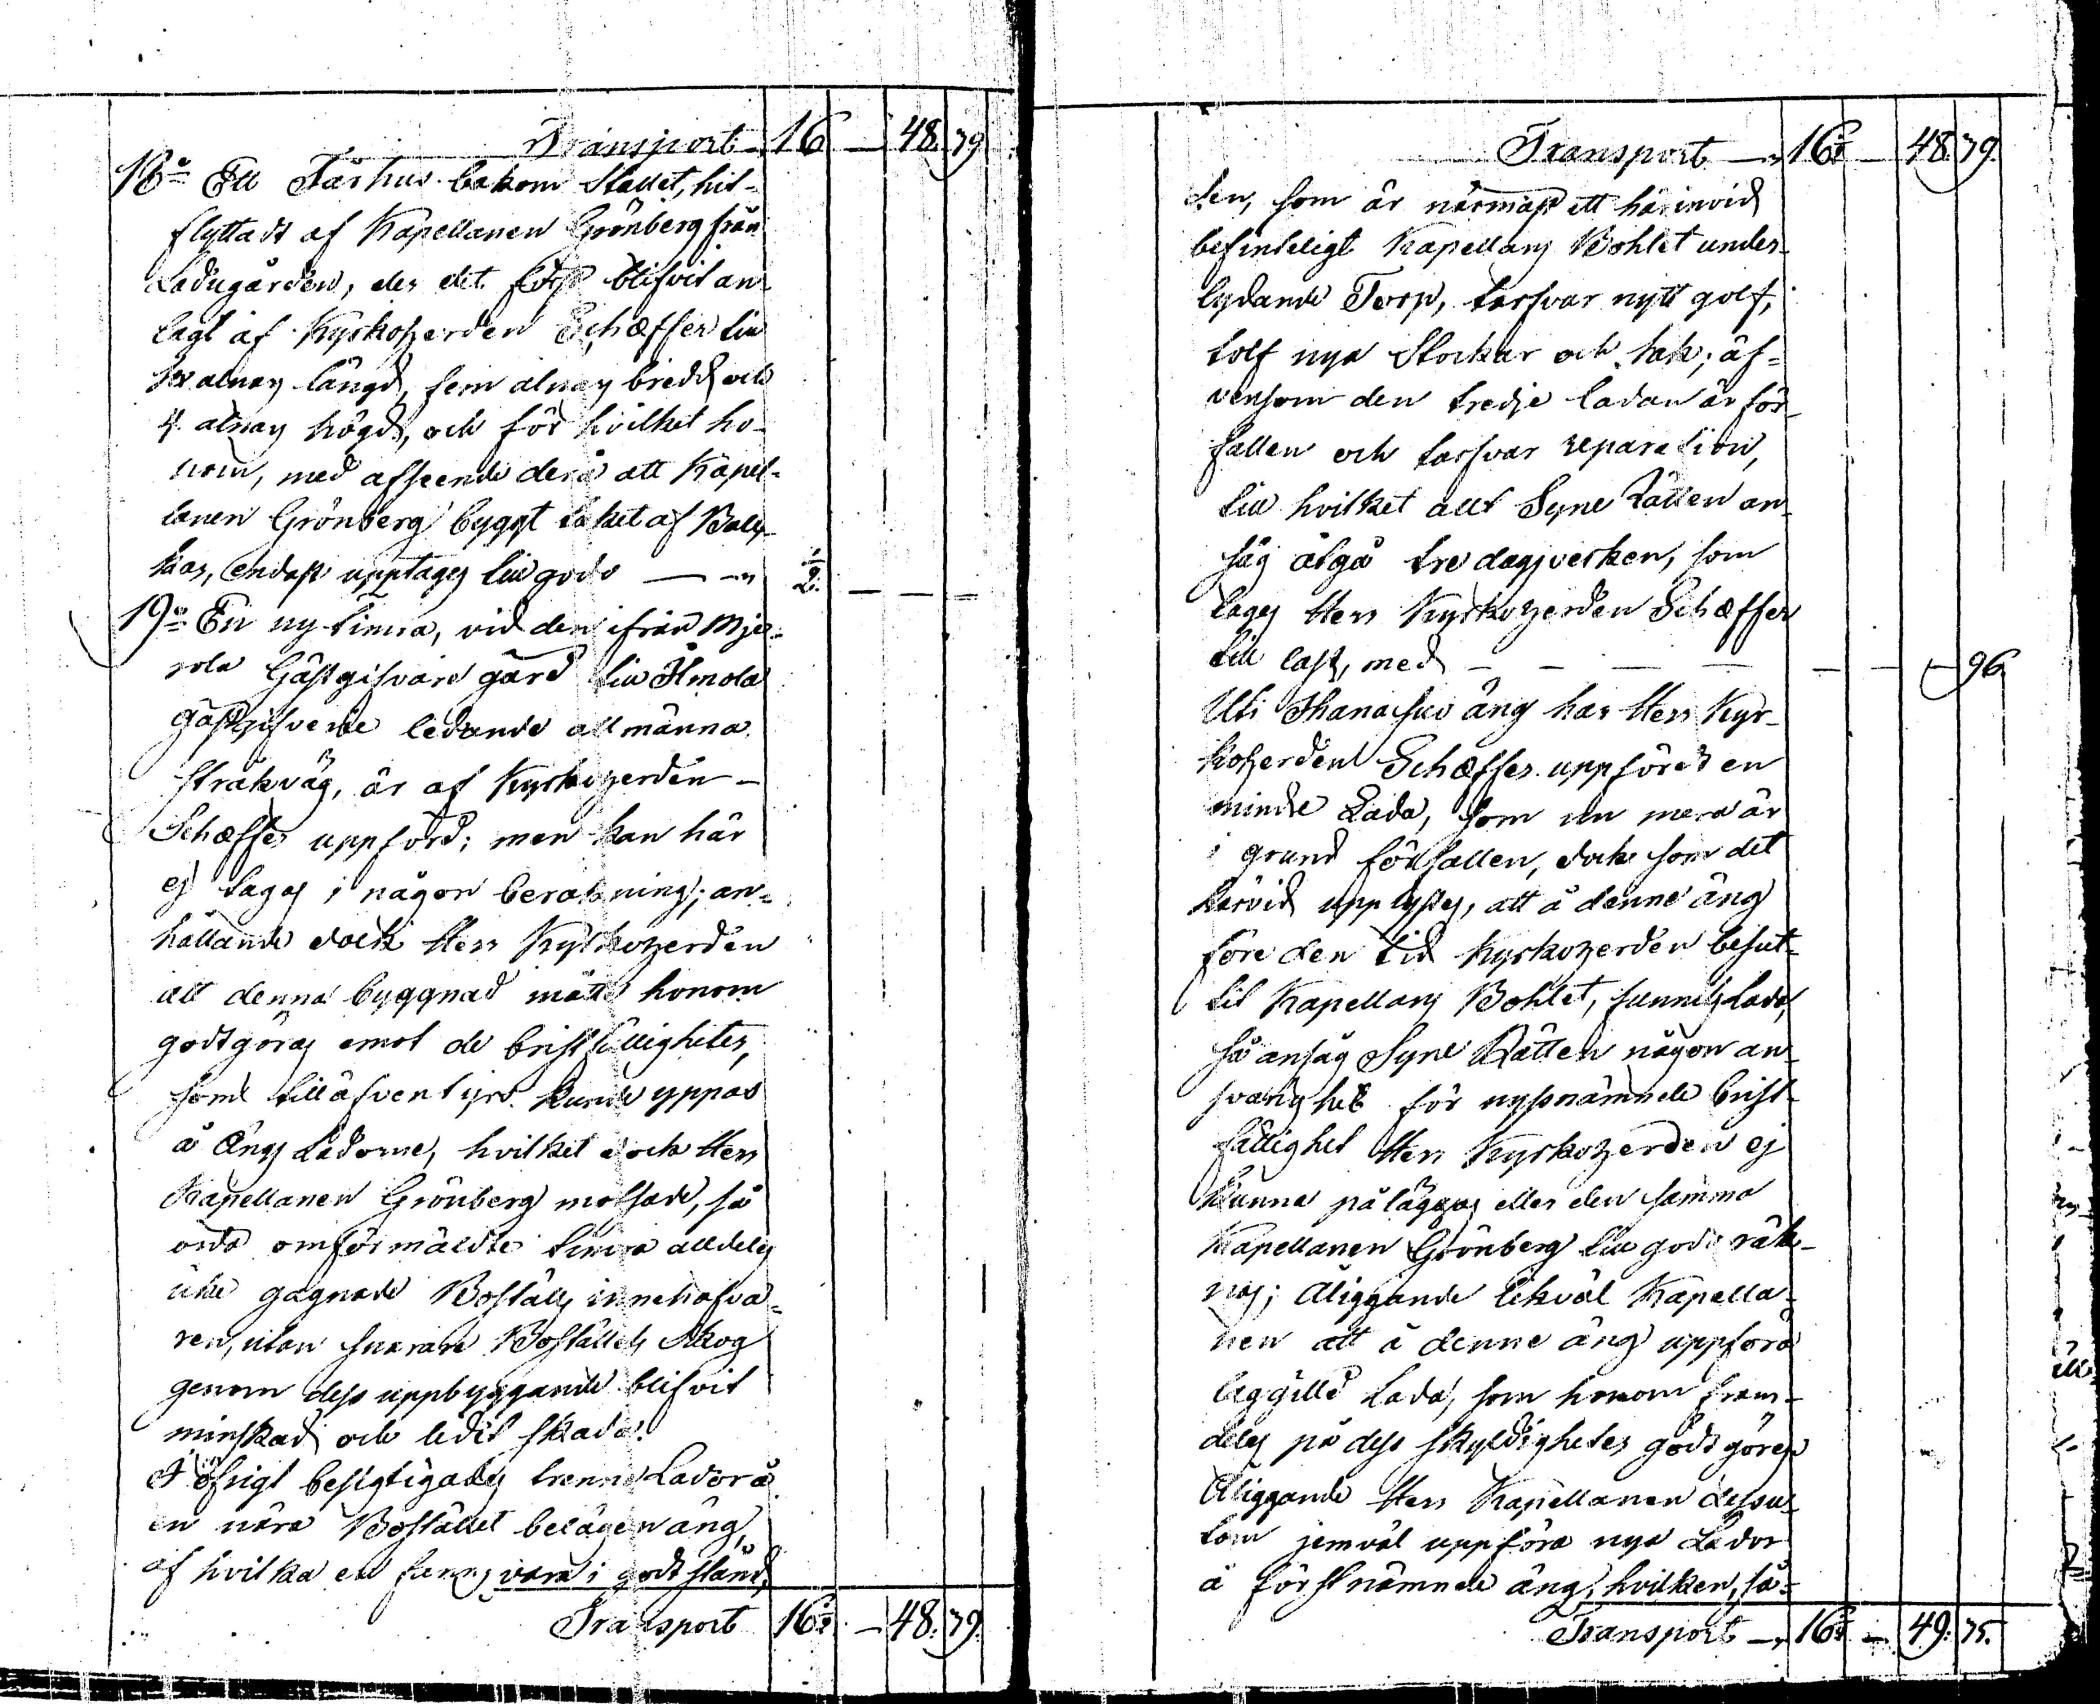 Transport 16 — 48. 79
18:o Ett Fårhus bakom Stallet, hit-
flyttadt af Kapellanen Grönberg från
Ladugården, der det först blifvit an-
lagt af Kyrkoherden Schæffer till
sex alnars längd, fem alnars bredd och
4. alnars högd, och för hvilket ho-
nom, med afseende derå att Kapel-
lanen Grönberg byggt taket af
endast upptages till godo — — 1/2. — — —
19:o En ny timra, vid den ifrån Mjer-
jola Gästgifvare gård till Ilmola
Gästgifveri ledande allmänna
stråkväg, är af Kyrkoherden —
Schæffer uppförd; men kan här
ej tagas i någon beräkning; an-
hållande dock Herr Kyrkoherden
att denna byggnad måtte honom
godtgöras emot de bristfälligheter,
som till äfventyrs kunde yppas
å Ängs Ladorne, hvilket dock Herr
Kapellanen Grönberg motsade, så
ofta omförmäldte timra alldeles
icke gagnade Boställs innehafva-
ren, utan snarare Boställets Skog
genom dess uppbyggande blifvit
minskad och lidit skada.
I öfrigt besigtigades trenne Lador å
en nära Bostället belägen äng,
af hvilka en fanns vara i godt stånd,
Transport 16 1/2 — 48. 79.
Transport — 16 1/2 — 48. 79.
ten, som är närmast ett härinvid
befinteligt Kapellans Bohlet under-
lydande Torp, tarfvar nytt golf,
tolf nya Stockar och tak; äf-
vensom den tredje ladan är för-
fallen och tarfvar reparation,
till hvilket allt Syne Rätten an-
såg åtgå tre dagsverken, som
tages Herr Kyrkoherden Schæffer
till last, med — — — — — — — 96.
Uti äng har Herr Kyr-
koherden Schæffer uppfördt en
mindre Lada, som nu mera är
i grund förfallen, dock som det
härvid upplystes, att å denne äng
före den tid Kyrkoherden besut-
tit Kapellans Bohlet, funnits Lada,
så ansåg Syne Rätten någon an-
svarighet för nyssnämnde brist-
fällighet Herr Kyrkoherden ej
kunna påläggas eller den samma
Kapellanen Grönberg till godo räk-
nas; Åliggande likväl Kapella-
nen att å denne äng uppföra
laggilld Lada, som honom fram-
deles på dess skyldigheter godtgöres
Åliggande Herr Kapellanen dessu-
tom jemväl uppföra nya Lador
å förstnämnde äng, hvilken, så-
Transport — 16 1/2 — 49. 75.